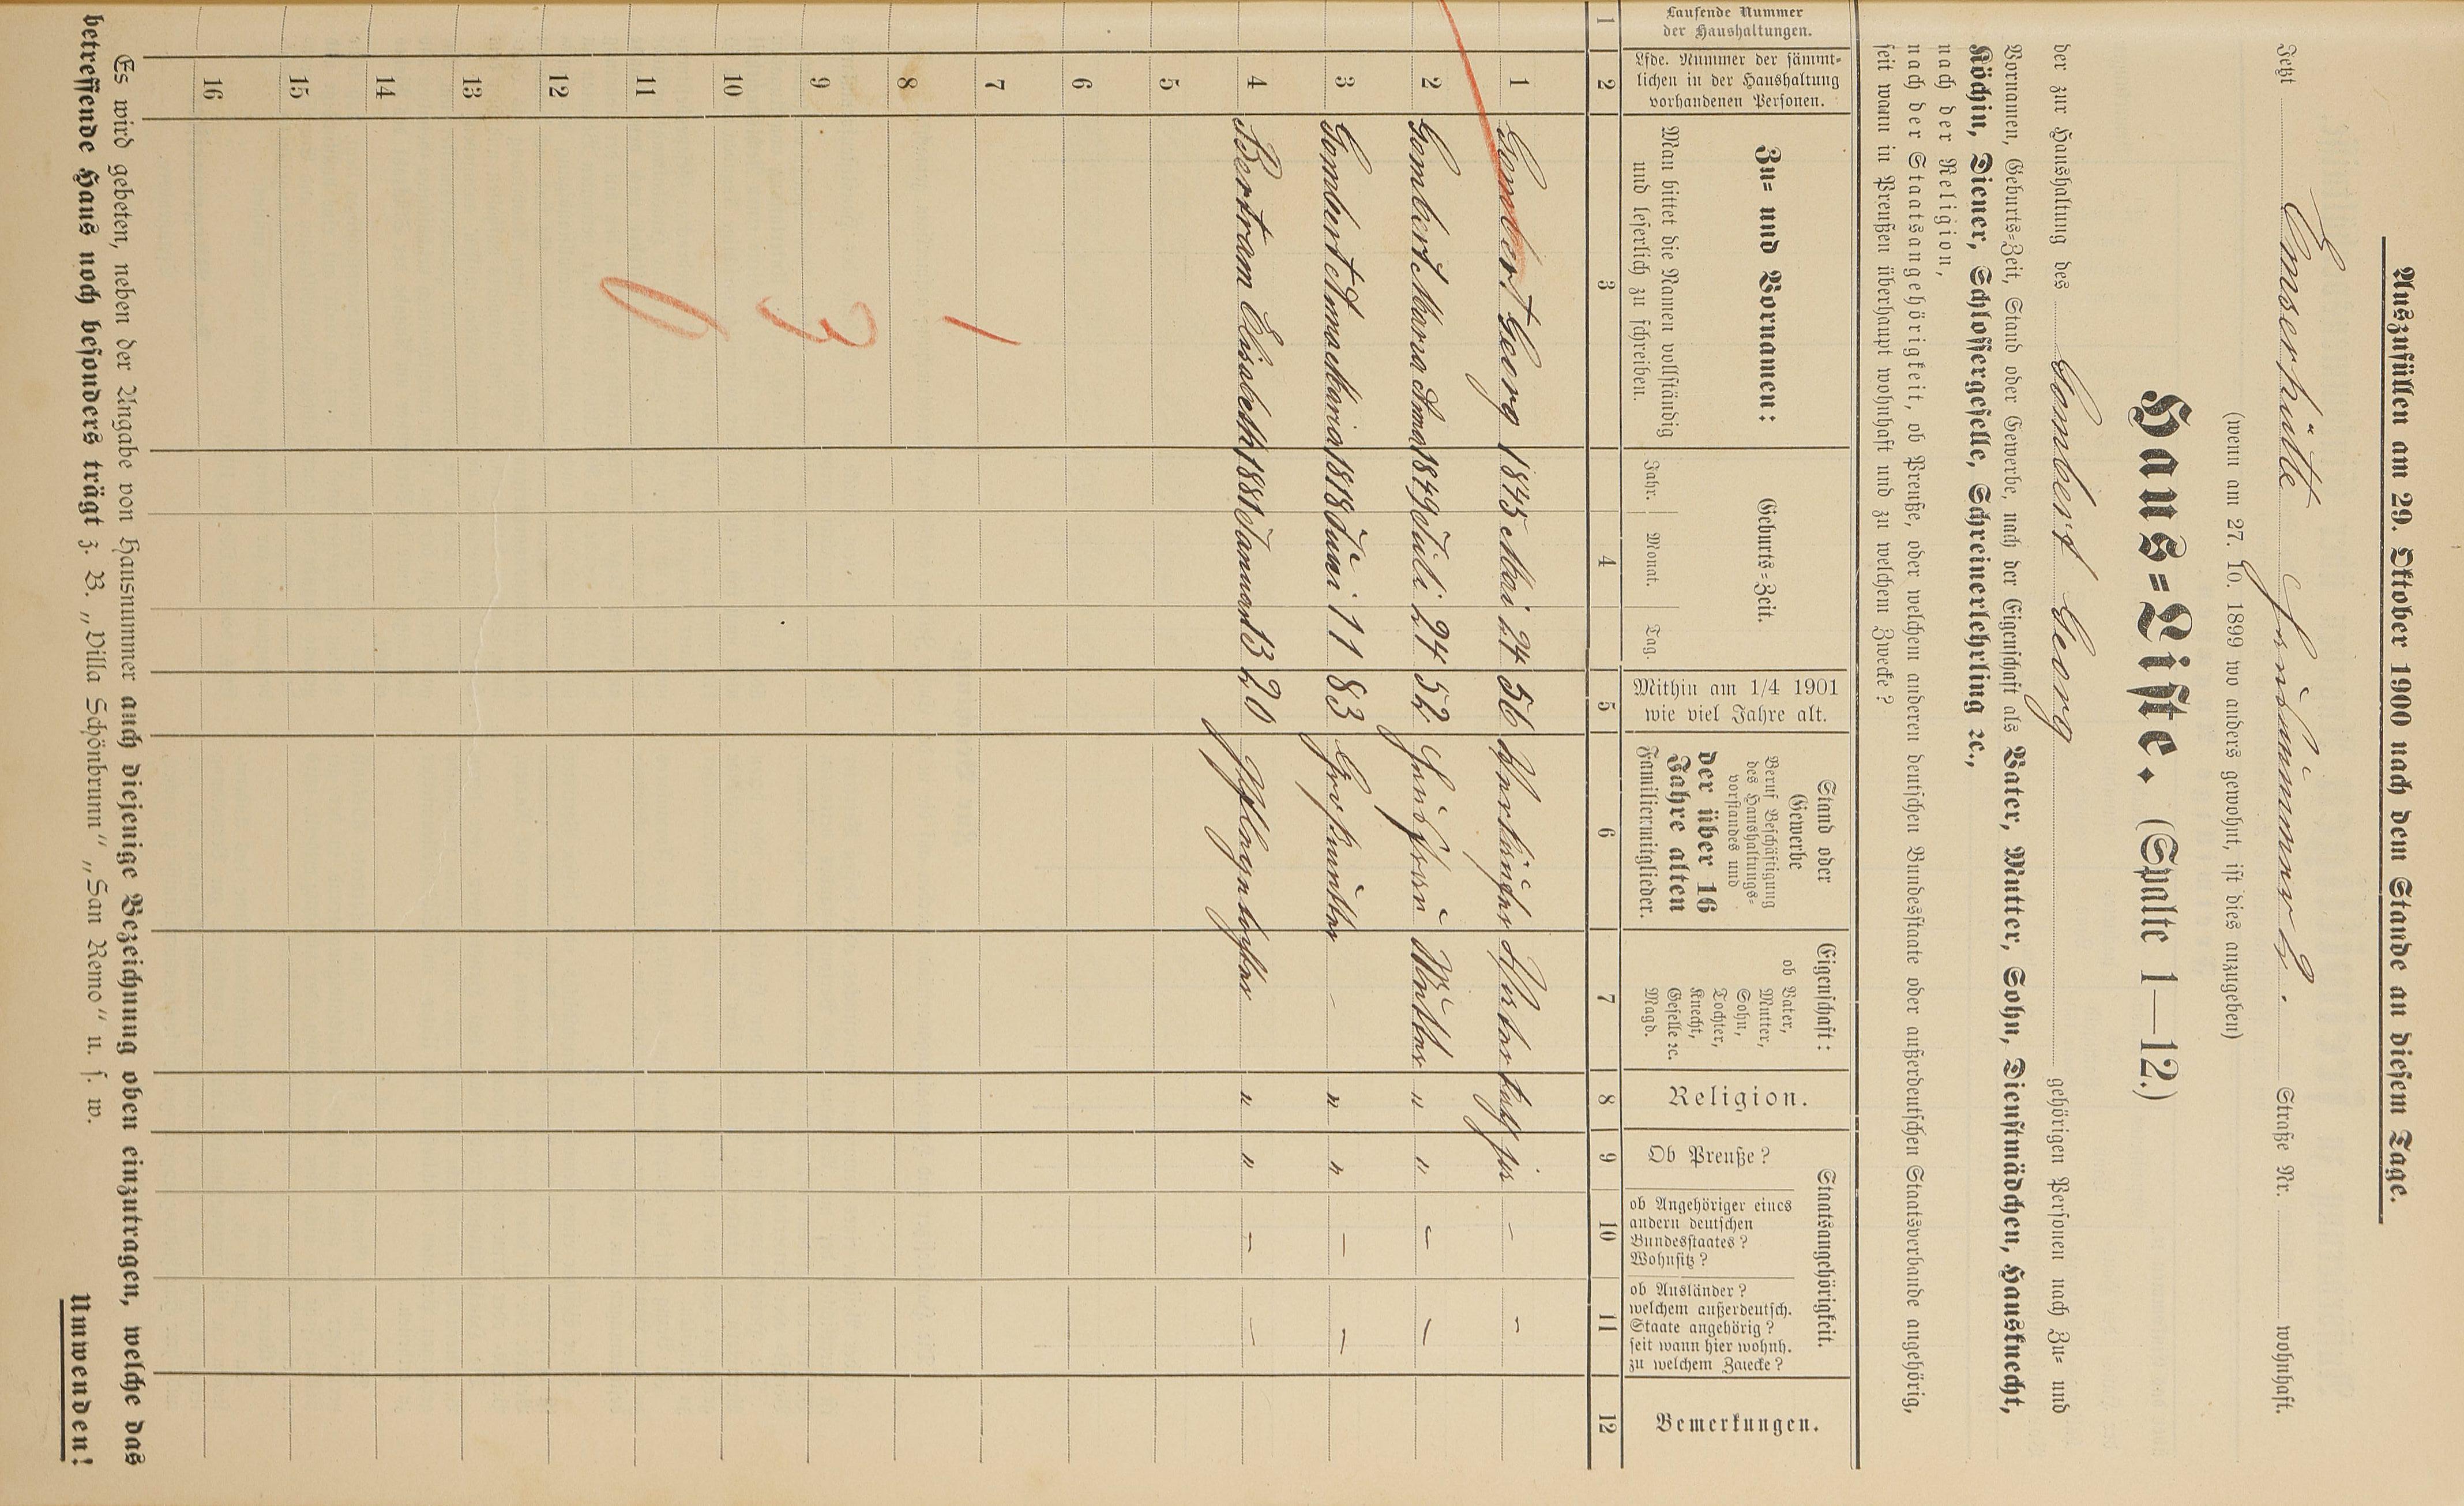 Auszufüllen am 29. Oktober 1900 nach dem Stande an diesem Tage.
Jetzt Emserhütte Straße Nr. wohnhaft.
(wenn am 27. 10. 1899 wo anders gewohnt, ist dies anzugeben)
Haus=Liste. (Spalte 1—12.)
der zur Haushaltung des Gombert Georg gehörigen Personen nach Zu= und
Vornamen, Geburts=Zeit, Stand oder Gewerbe, nach der Eigenschaft als Vater, Mutter, Sohn, Dienstmädchen, Hausknecht,
Köchin, Diener, Schlossergeselle, Schreinerlehrling ꝛc.,
nach der Religion,
nach der Staatsangehörigkeit, ob Preuße, oder welchem anderen deutschen Bundesstaate oder außerdeutschen Staatsverbande angehörig,
seit wann in Preußen überhaupt wohnhaft und zu welchem Zwecke?
Laufende Nummer
der Haushaltungen.
Lfde. Nummer der sämmt=
lichen in der Haushaltung
vorhandenen Personen.
Zu= und Vornamen:
Man bittet die Namen vollständig
und leserlich zu schreiben.
Geburts=Zeit.
Jahr. Monat. Tag.
Mithin am 1/4 1901
wie viel Jahre alt.
Stand oder
Gewerbe
Beruf Beschäftigung
des Haushaltungs=
vorstandes und
der über 16
Jahre alten
Familienmitglieder.
Eigenschaft:
ob Vater,
Mutter,
Sohn,
Tochter,
Knecht,
Geselle ꝛc.
Magd.
Religion.
Staatsangehörigkeit.
Ob Preuße?
ob Angehöriger eines
andern deutschen
Bundesstaates?
Wohnsitz?
ob Ausländer?
welchem außerdeutsch.
Staate angehörig?
seit wann hier wohnh.
zu welchem Zwecke?
Bemerkungen.
1 2 3 4 5 6 7 8 9 10 11 12
1 Gombert Georg 1845 Mai 24 56 kath – –
2 Gombert Maria Anna 1849 Juli 24 52 Hausfrau Mutter " " – –
3 Gombert Anna Maria 1818 Juni 11 83 Großmutter – " " – –
4 Bertram Elisabeth 1881 Januar 13 20 Pflegetochter " " – –
5
6
7 1
8
9 3
10
11 0
12
13
14
15
16
Es wird gebeten, neben der Angabe von Hausnummer auch diejenige Bezeichnung oben einzutragen, welche das
betreffende Haus noch besonders trägt z. B. „Villa Schönbrunn“ „San Remo“ u. s. w.
Umwenden!